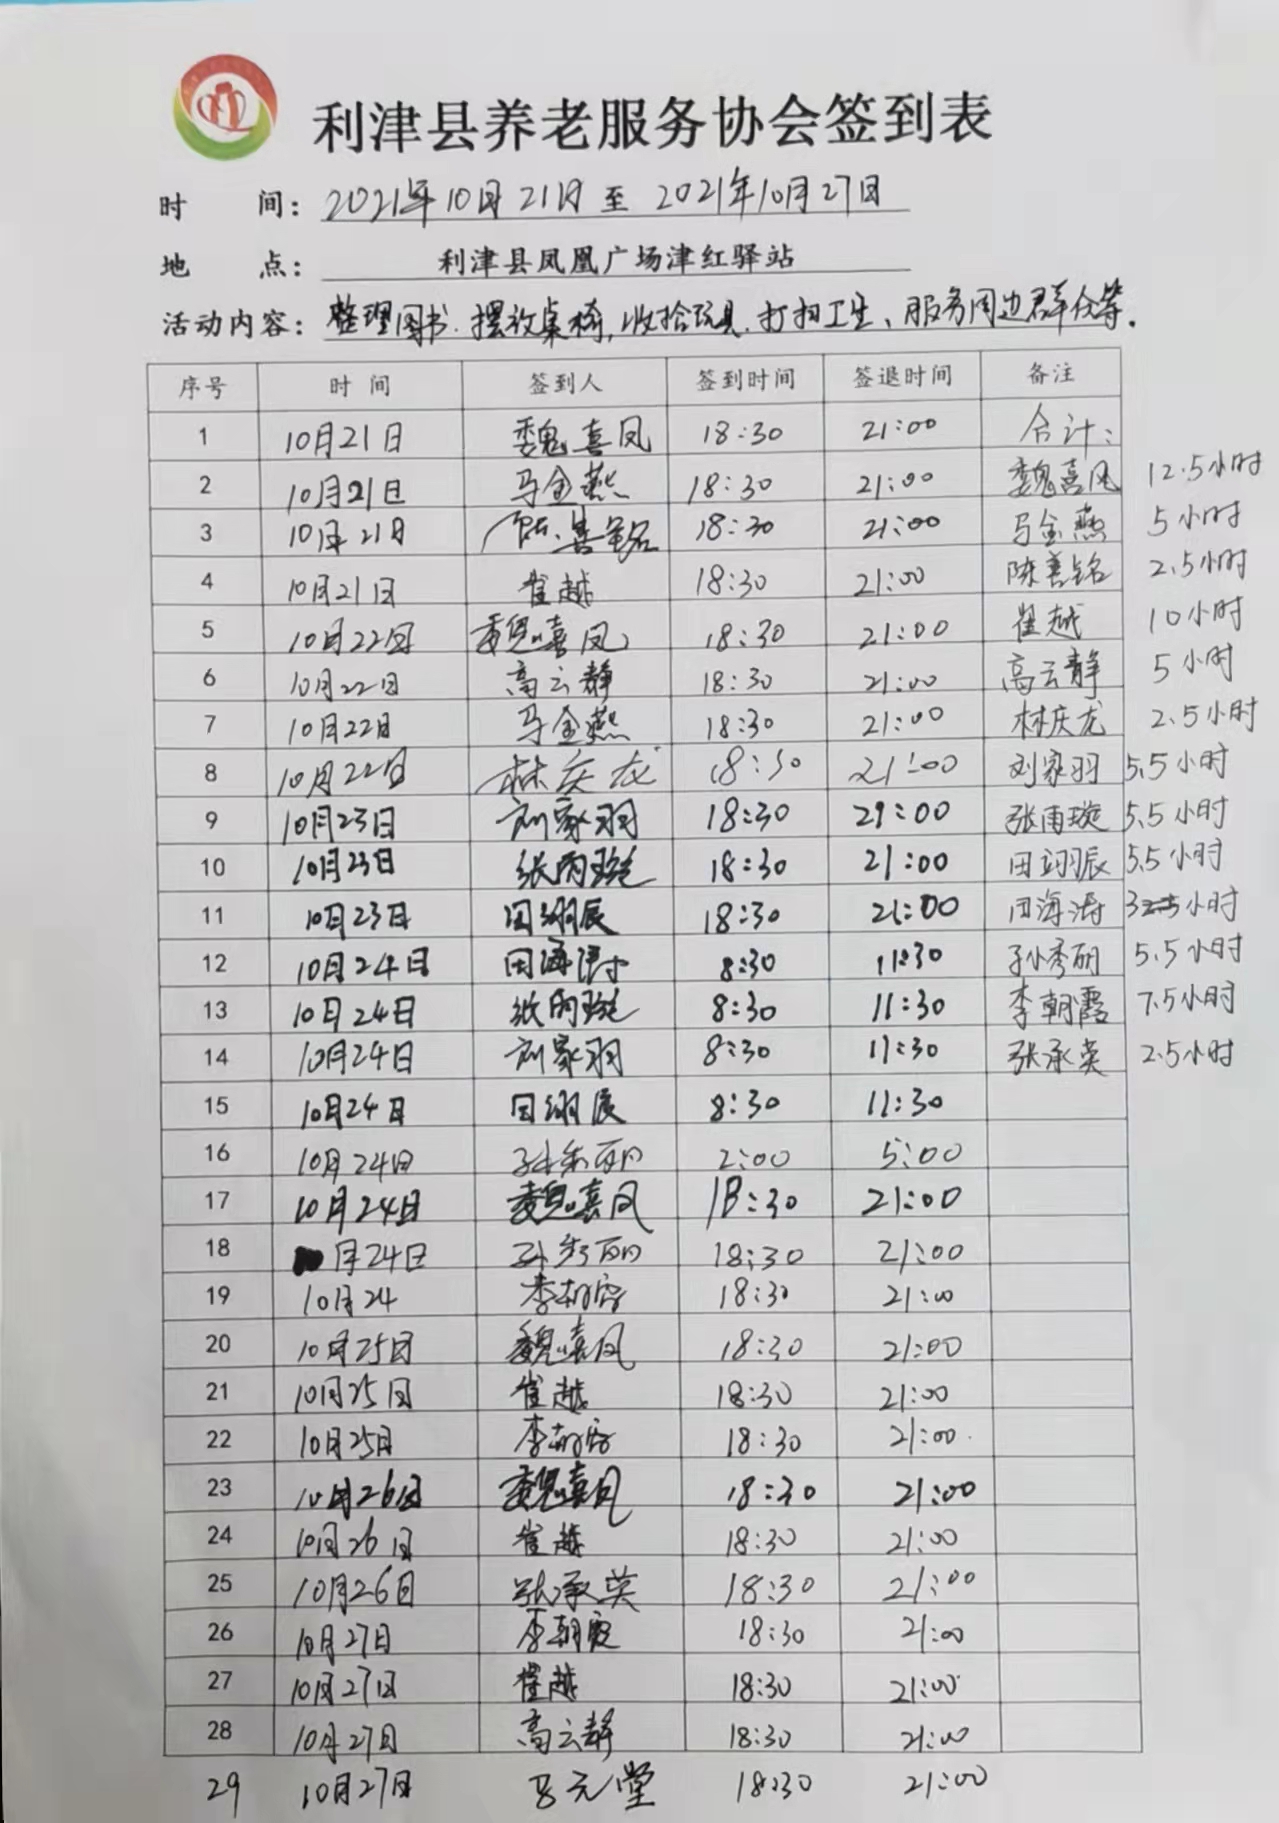 利津县养老服务协会签到表
时 间: 2021年10月21日 至 2021年10月27日
地 点: 利津县凤凰广场津红驿站
活动内容: 整理图书.摆放桌椅,收拾玩具.打扫卫生、服务周边群众等.
序号 时间 签到人 签到时间 签退时间 备注
1 10月21日 魏喜凤 18:30 21:00 合计:
2 10月21日 马金燕 18:30 21:00 魏喜凤 12.5小时
3 10月21日 陈善铭 18:30 21:00 马金燕 5小时
4 10月21日 崔越 18:30 21:00 陈善铭 2.5小时
5 10月22日 魏喜凤 18:30 21:00 崔越 10小时
6 10月22日 高云静 18:30 21:00 高云静 5小时
7 10月22日 马金燕 18:30 21:00 林庆龙 2.5小时
8 10月22日 林庆龙 18:30 21:00 刘家羽 5.5小时
9 10月23日 刘家羽 18:30 21:00 张雨璇 5.5小时
10 10月23日 张雨璇 18:30 21:00 田翊辰 5.5小时
11 10月23日 田翊辰 18:30 21:00 田海涛 3小时
12 10月24日 田海涛 8:30 11:30 孙秀丽 5.5小时
13 10月24日 张雨璇 8:30 11:30 李朝霞 7.5小时
14 10月24日 刘家羽 8:30 11:30 张承英 2.5小时
15 10月24日 田翊辰 8:30 11:30
16 10月24日 孙秀丽 2:00 5:00
17 10月24日 魏喜凤 18:30 21:00
18 月24日 孙秀丽 18:30 21:00
19 10月24 李朝霞 18:30 21:00
20 10月25日 魏喜凤 18:30 21:00
21 10月25日 崔越 18:30 21:00
22 10月25日 李朝霞 18:30 21:00
23 10月26日 魏喜凤 18:30 21:00
24 10月26日 崔越 18:30 21:00
25 10月26日 张承英 18:30 21:00
26 10月27日 李朝霞 18:30 21:00
27 10月27日 崔越 18:30 21:00
28 10月27日 高云静 18:30 21:00
29 10月27日 马元堂 18:30 21:00